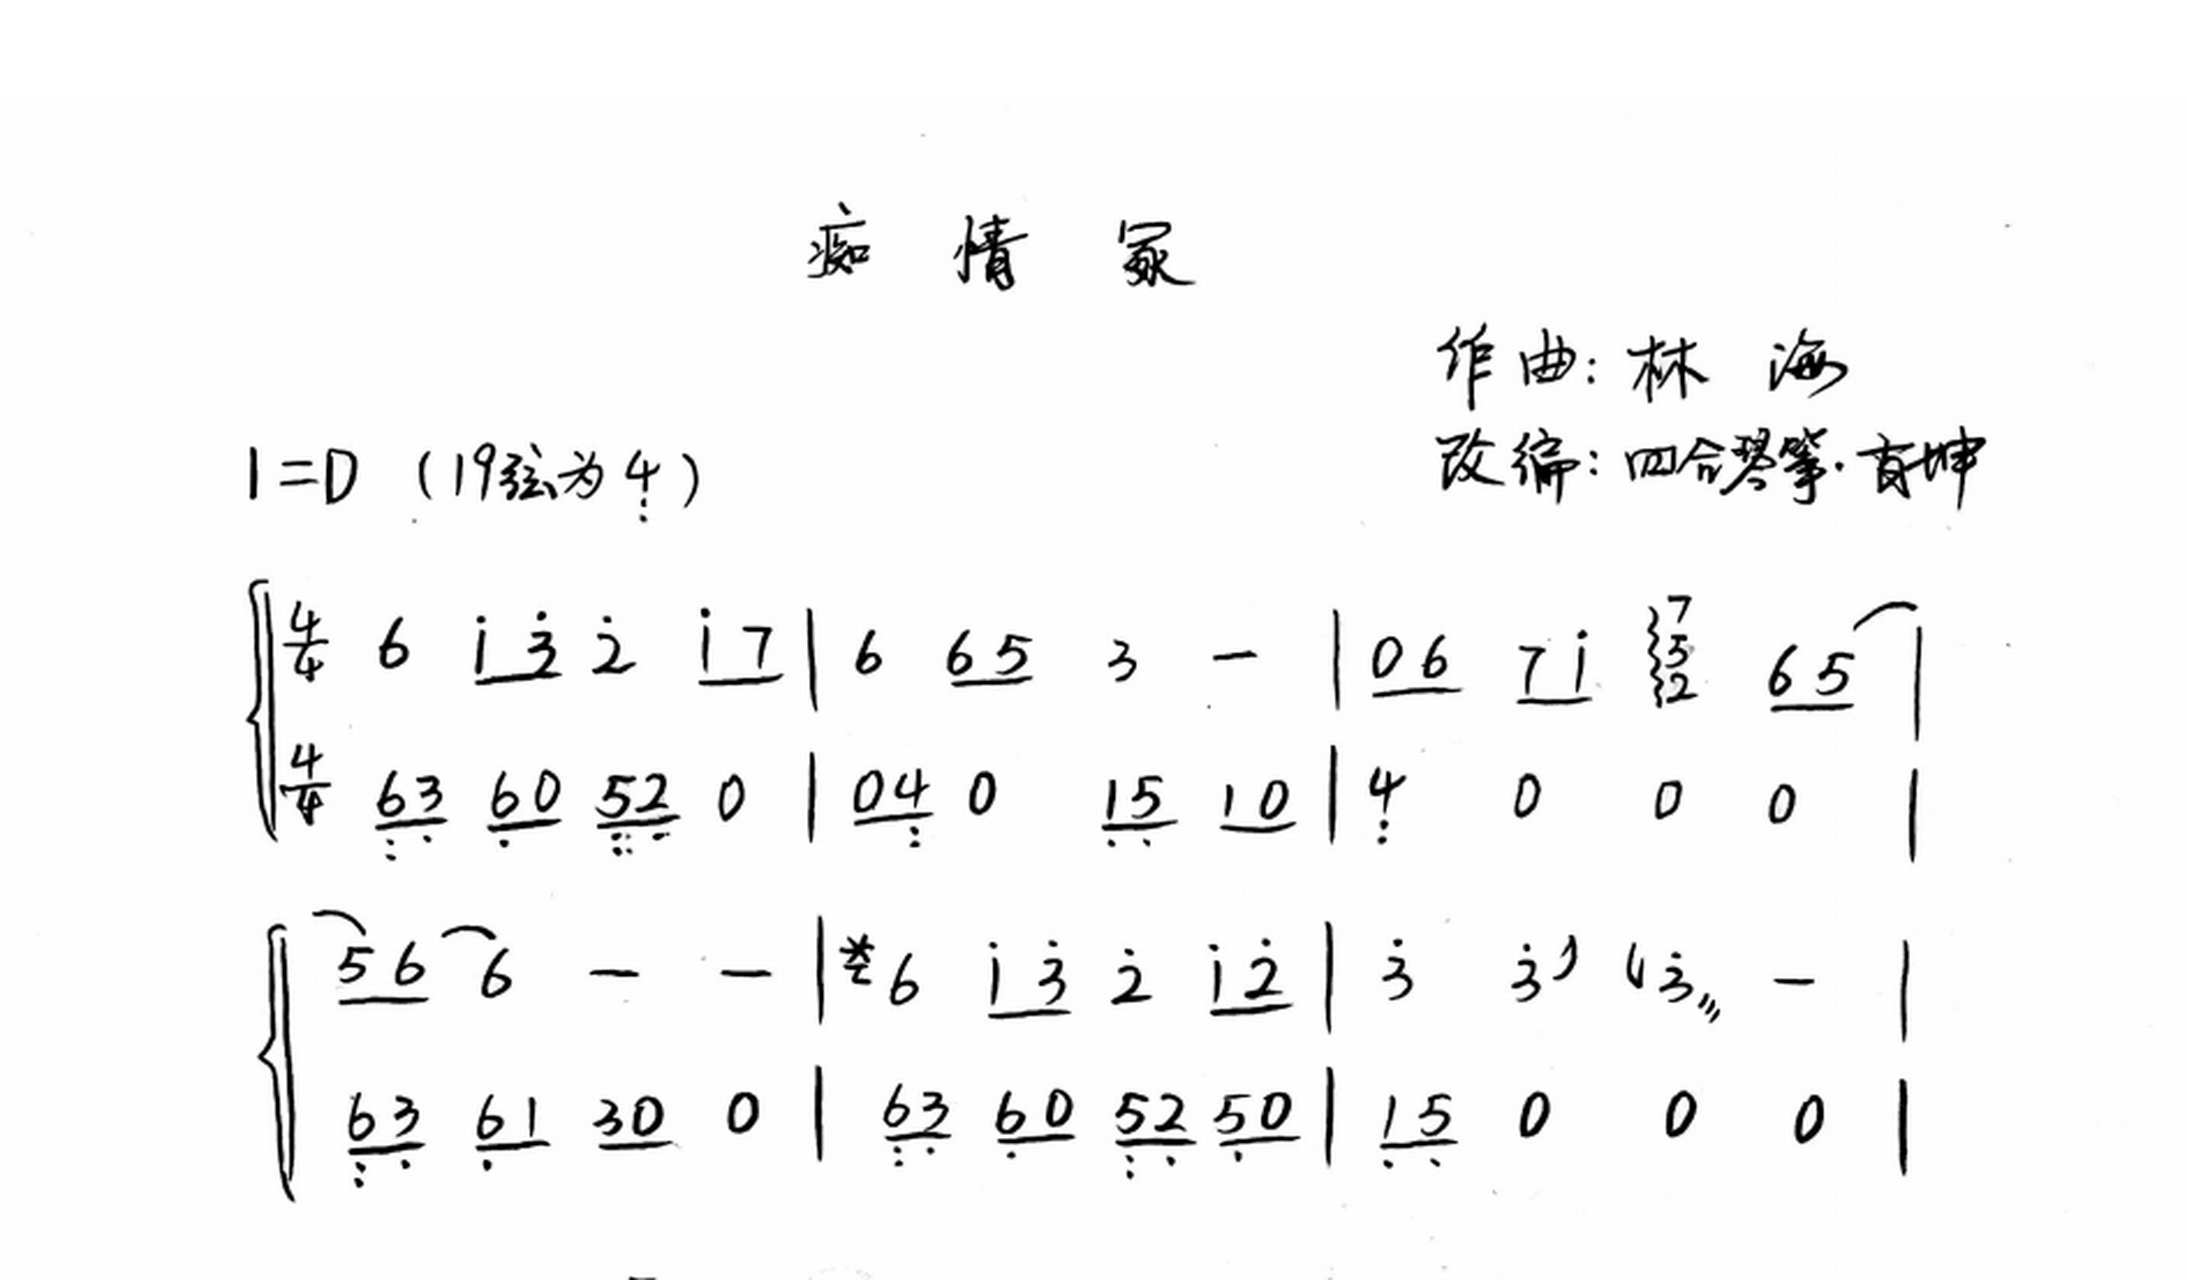 痴 情 冢
作曲: 林 海
1=D (19弦为4̣)
改编: 四合琴筝·育坤
4/4 6 i 3̇ 2̇ i 7 | 6 6 5 3 — | 0 6 7 i 7 5 2 6 5 |
4/4 6 3 6 0 5 2 0 | 0 4 0 1 5 1 0 | 4 0 0 0 |
5 6 6 — — | 6 i 3̇ 2̇ i 2̇ | 3̇ 3̇ 3̇ — |
6 3 6 1 3 0 0 | 6 3 6 0 5 2 5 0 | 1 5 0 0 0 |